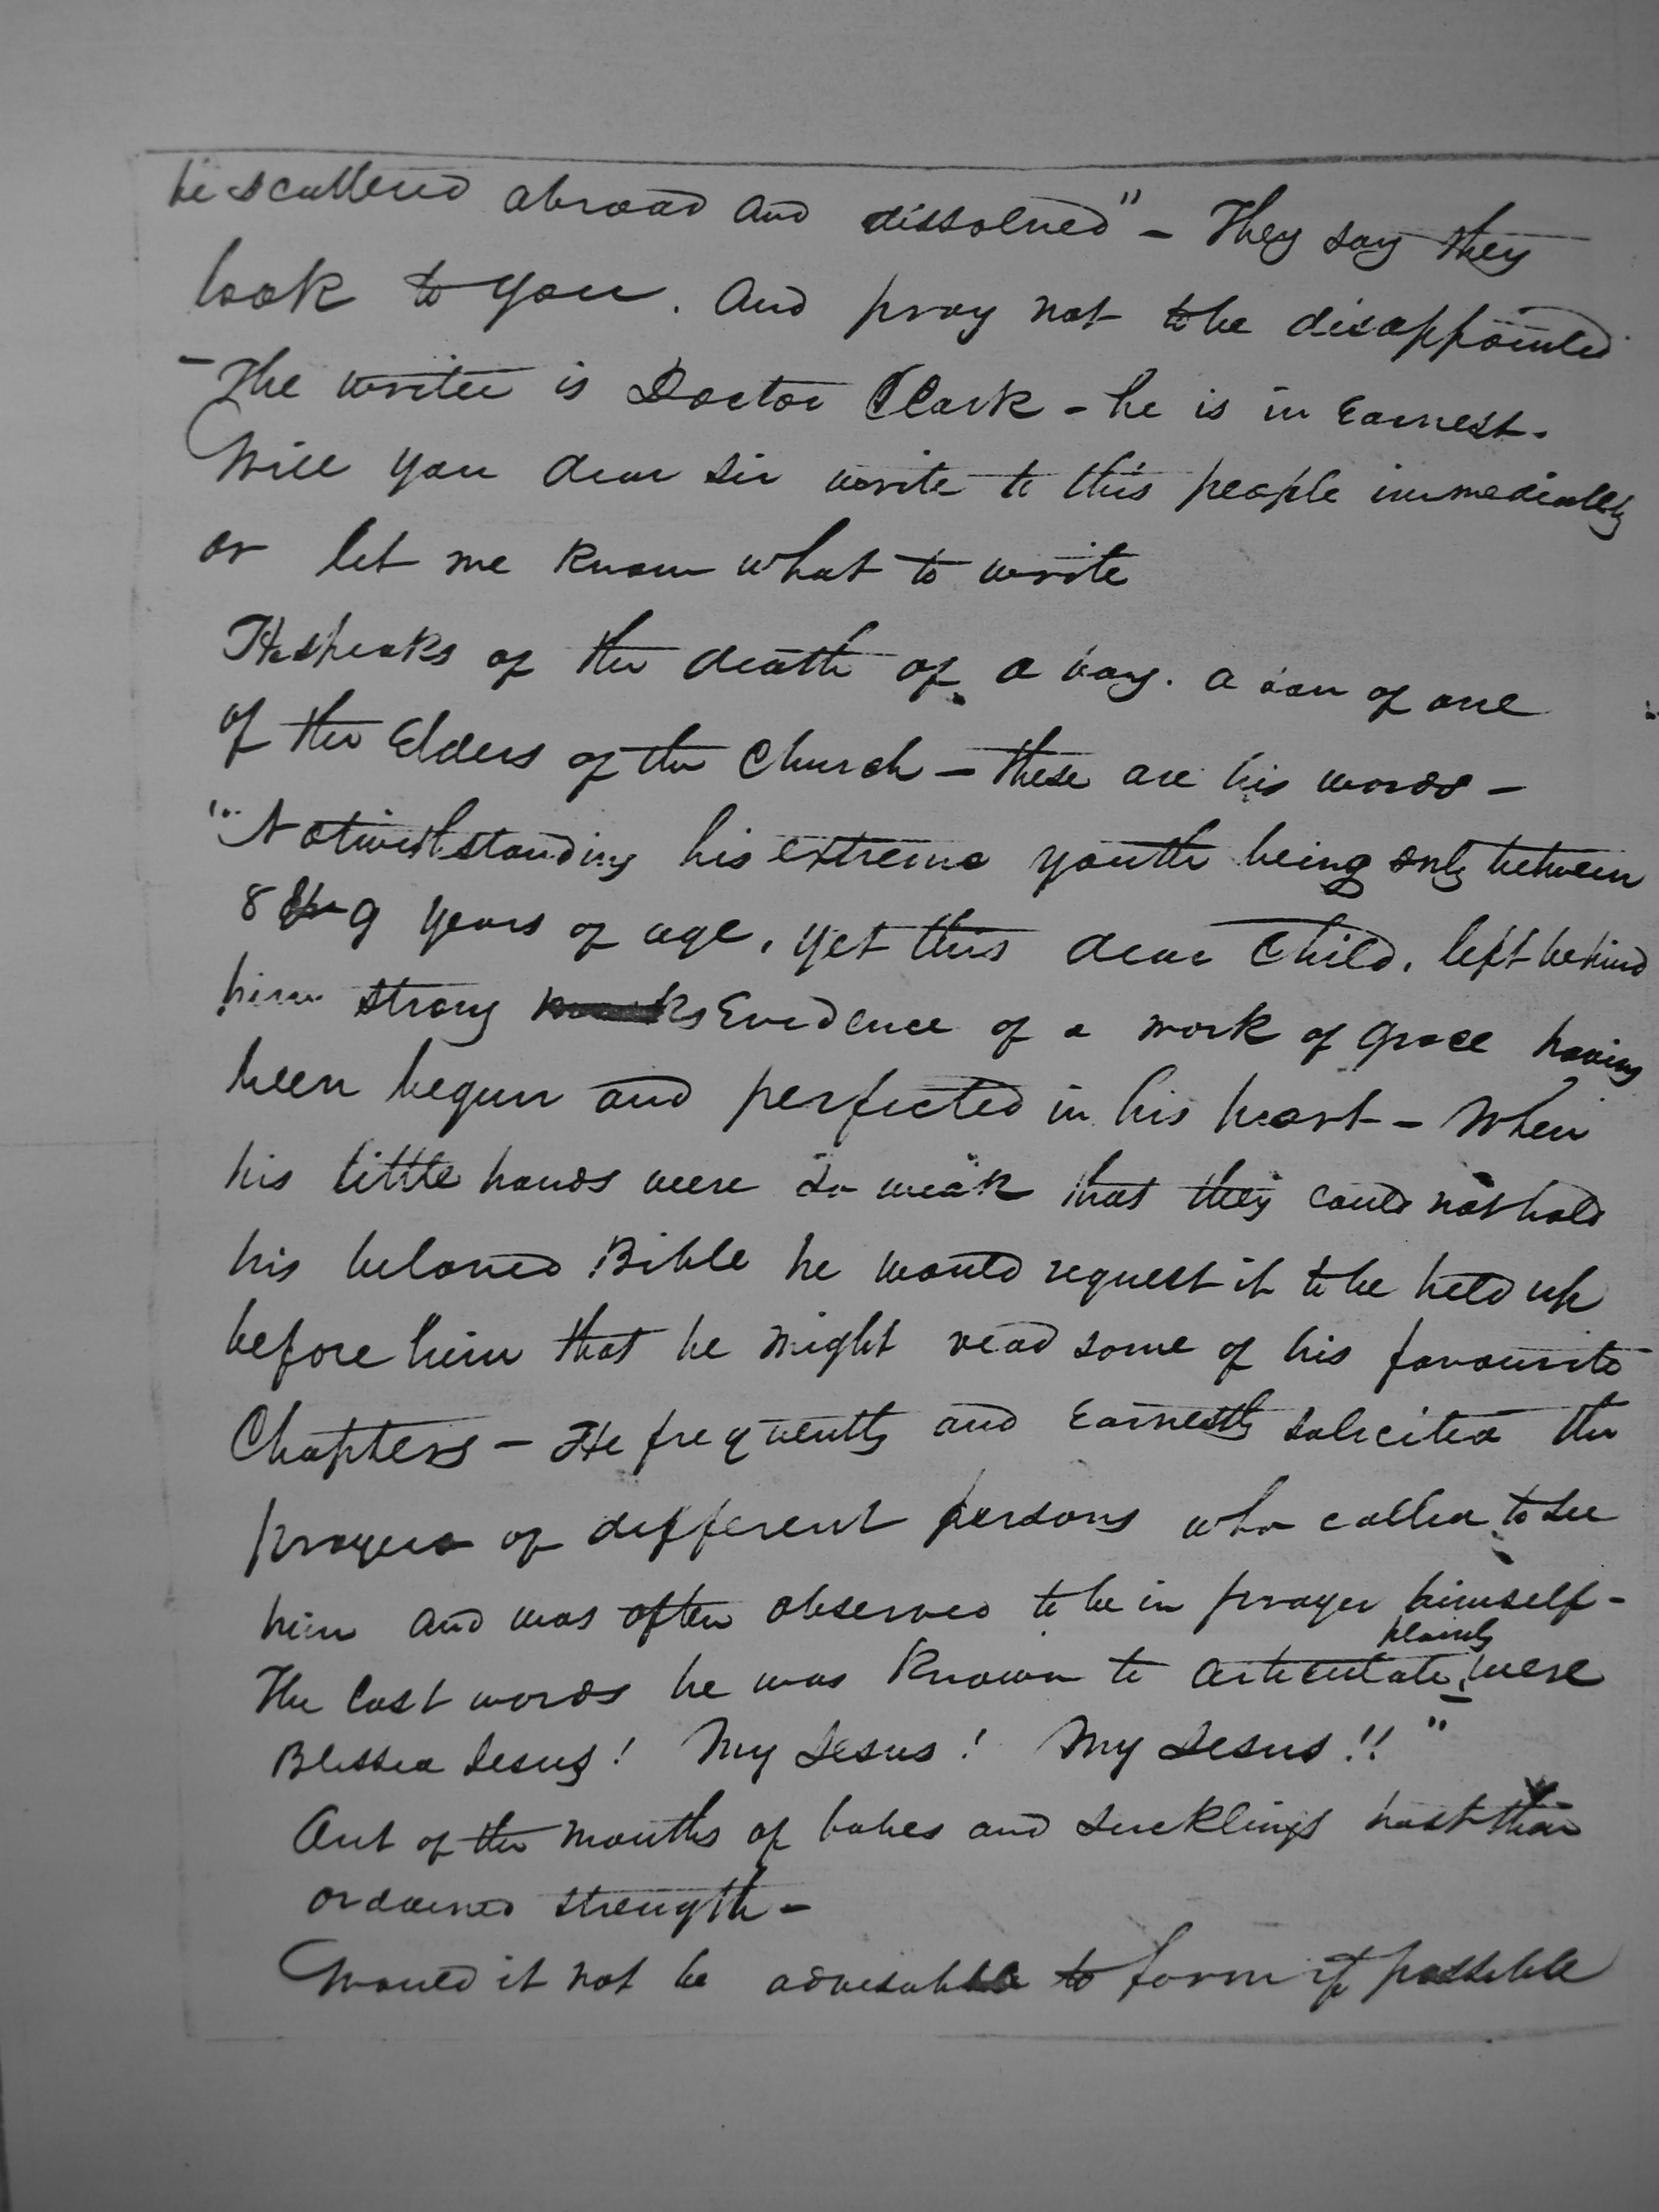 be scattered abroad and dissolved" - They say they
look to you. And pray not to be disappointed
- The writer is Doctor Clark - he is in Earnest.
Will you dear sir write to this people immediately
or let me know what to write
He speaks of the death of a boy. a son of one
of the Elders of the Church - these are his words -
"Notwithstanding his extreme youth being only between
8 & 9 years of age, yet this dear child, left behind
him strong Evidence of a work of grace having
been begun and perfected in his heart - When
his little hands were so weak that they could not hold
his beloved Bible he would request it to be held up
before him that he might read some of his favourite
Chapters - He frequently and Earnestly solicited the
prayers of different persons who called to see
him and was often observed to be in prayer himself -
The last words he was known to articulate plainly were
Blessed Jesus! My Jesus! My Jesus!!"
Out of the mouths of babes and sucklings hast thou
ordained strength -
Would it not be advisable to form if possible